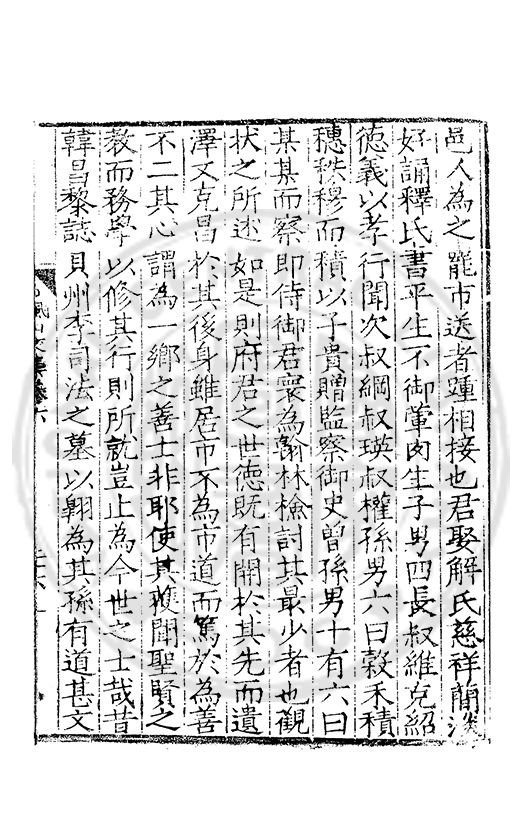 邑人為之罷市送者踵相接也君娶解氏慈祥簡淡
好誦釋氏書平生不御葷肉生子男四長叔維克紹
徳義以孝行聞次叔綱叔瑛叔權孫男六曰穀禾積
穗秩穆而積以子貴贈監察御史曾孫男十有六曰
某某而察即侍御君寰為翰林檢討其最少者也觀
状之所述如是則府君之世徳既有開於其先而遺
澤又克昌於其後身雖居市不為市道而篤於為善
不二其心謂為一鄉之善士非耶使其獲聞聖賢之
教而務學以修其行則所就豈止為今世之士哉昔
韓昌黎誌貝州李司法之墓以翺為其孫有道甚文